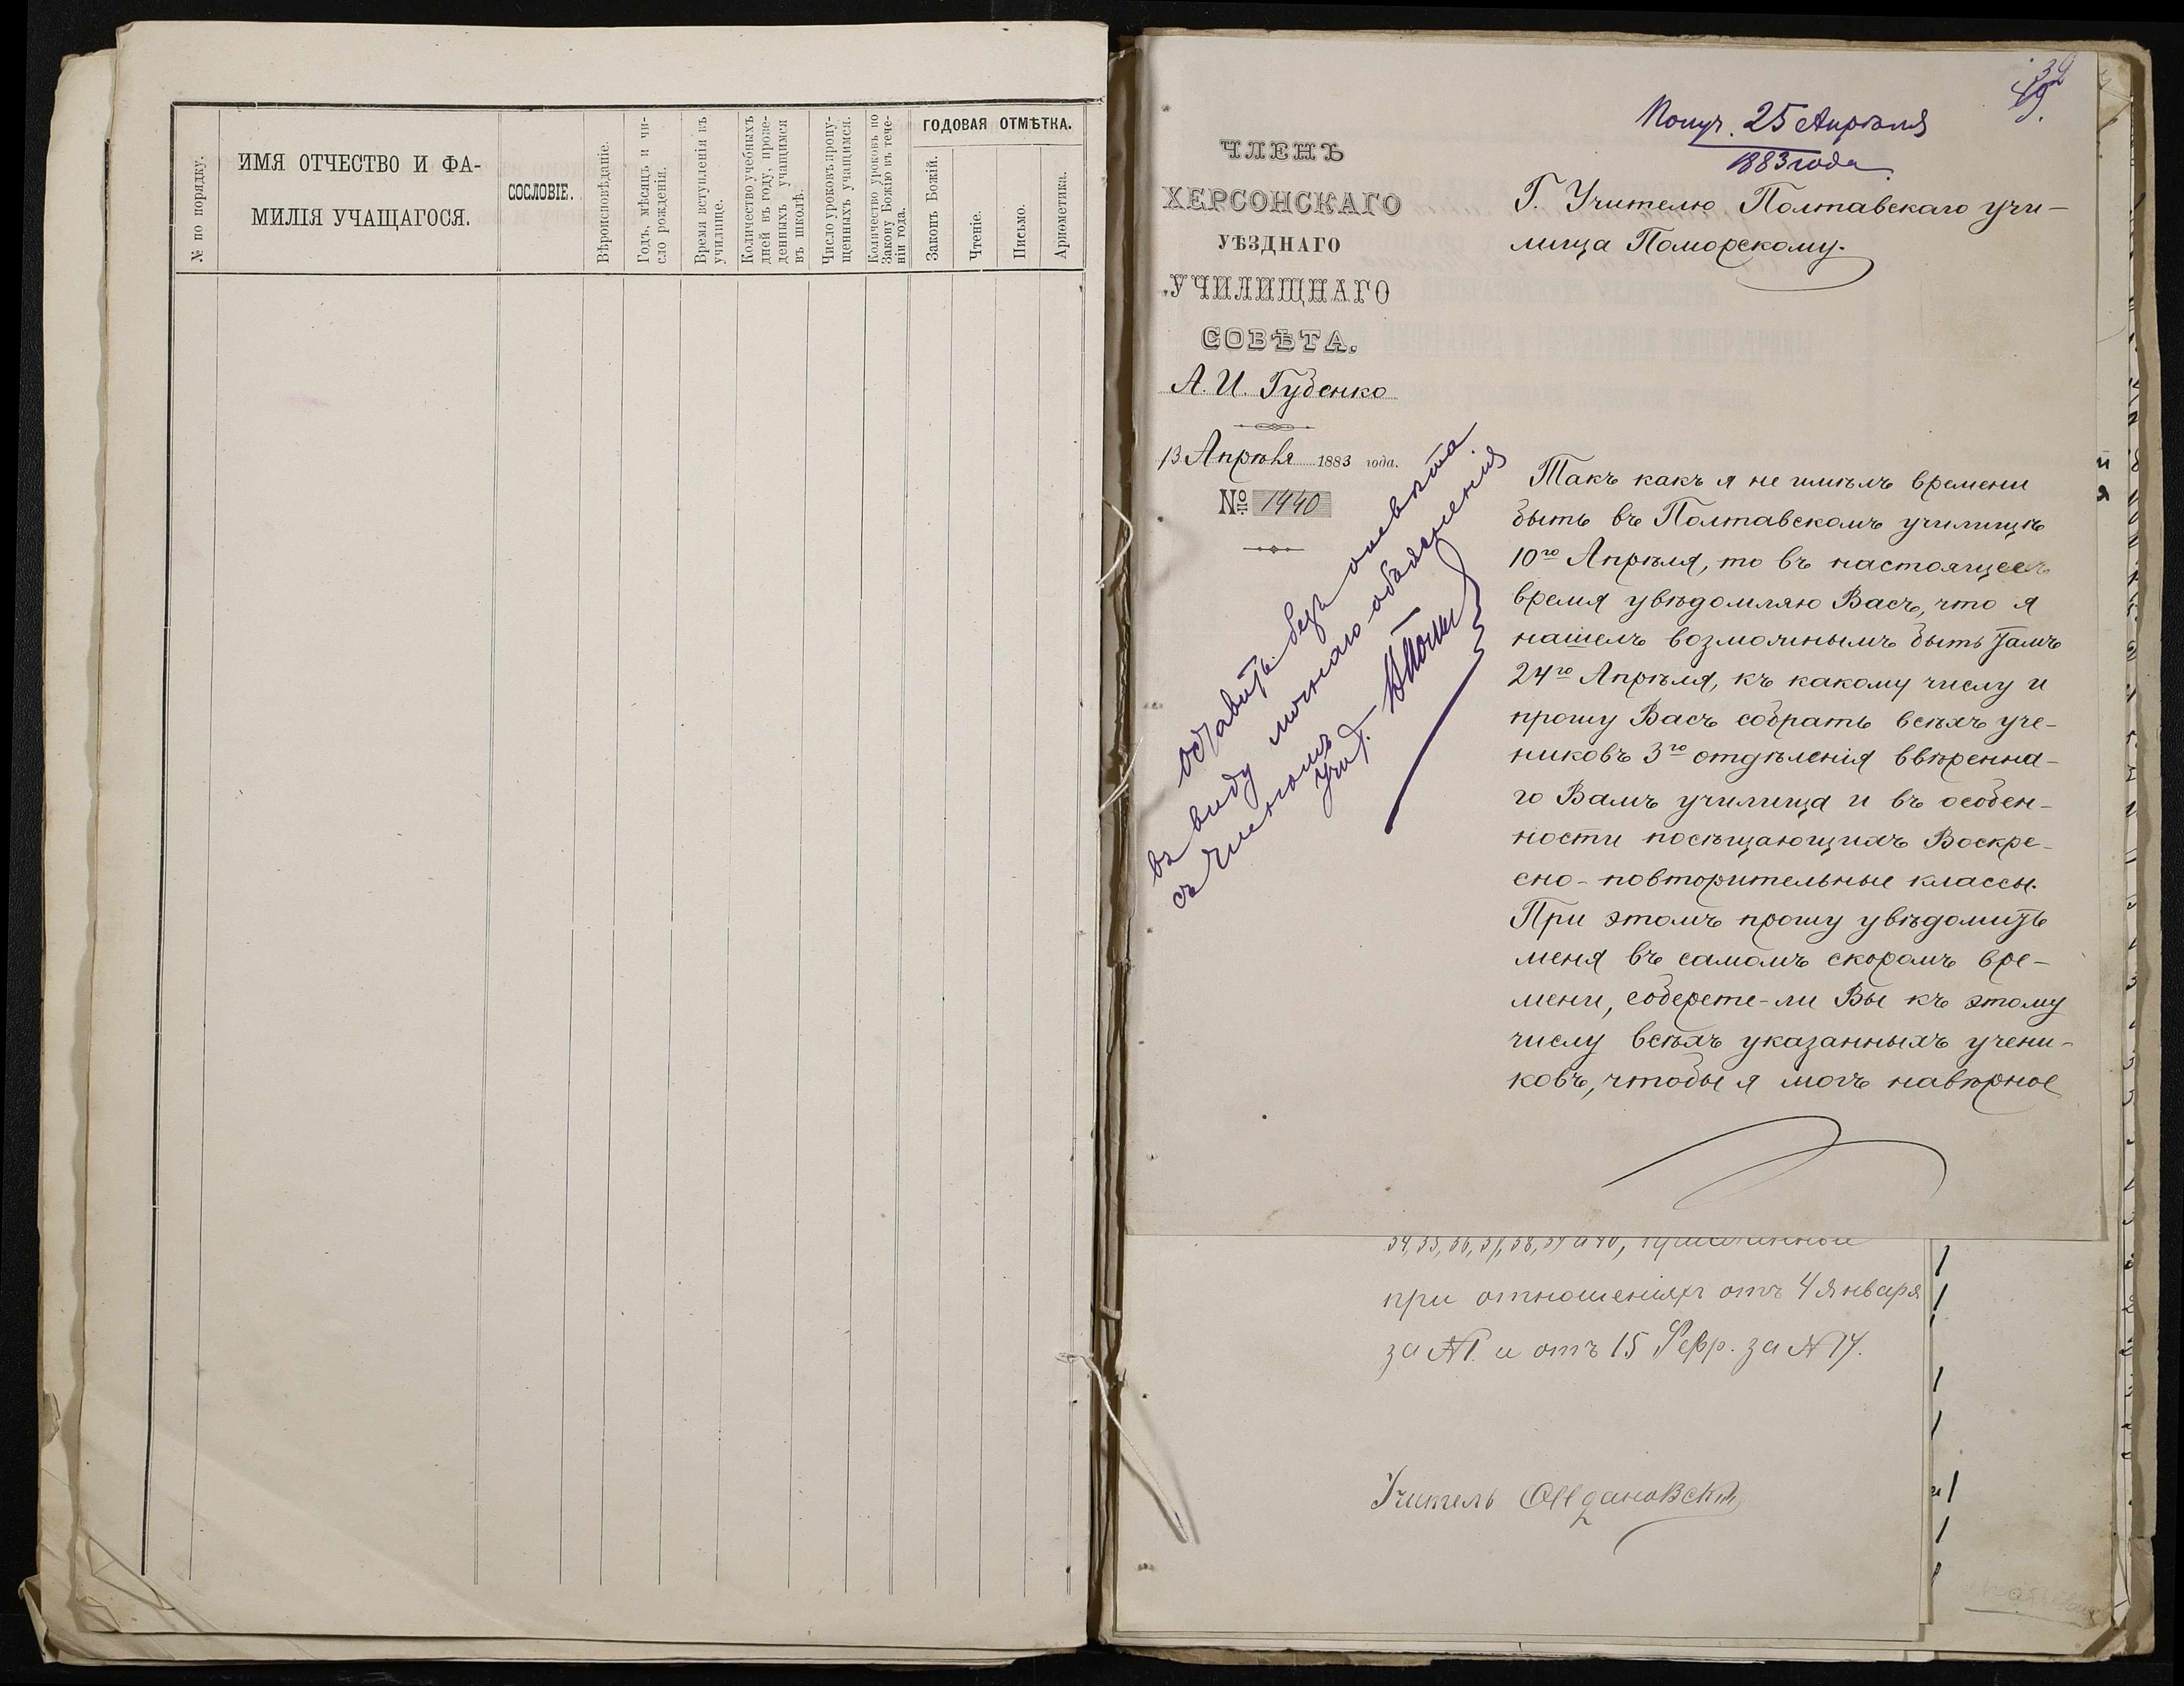 № по порядку.
ИМЯ ОТЧЕСТВО И ФА-
МИЛІЯ УЧАЩАГОСЯ.
СОСЛОВІЕ.
Вѣроисповѣданіе.
Годъ, мѣсяцъ и чи-
сло рожденія.
Время вступленія въ
училище.
Количество учебныхъ
дней въ году, прове-
денныхъ учащимся
въ школѣ.
Число уроковъ пропу-
щенныхъ учащимся.
Количество уроковъ по
Закону Божію въ тече-
ніи года.
ГОДОВАЯ ОТМѢТКА.
Законъ Божій.
Чтеніе.
Письмо.
Ариѳметика.
39
Получ. 25 Апрѣля
1883 года
ЧЛЕНЪ
ХЕРСОНСКАГО
УѢЗДНАГО
УЧИЛИЩНАГО
СОВѢТА.
А. И. Губенко
13 Апрѣля 1883 года.
№ 1440
Г. Учителю Полтавскаго учи-
лища Поморскому.
Такъ какъ я не имѣлъ времени
быть въ Полтавскомъ училищѣ
10го Апрѣля, то въ настоящее
время увѣдомляю Васъ, что я
нашелъ возможнымъ быть тамъ
24го Апрѣля, къ какому числу и
прошу Васъ собрать всѣхъ уче-
никовъ 3го отдѣленія ввѣренна-
го Вамъ училища и въ особен-
ности посѣщающихъ Воскре-
сно-повторительные классы.
При этомъ прошу увѣдомить
меня въ самомъ скоромъ вре-
мени, соберете-ли Вы къ этому
числу всѣхъ указанныхъ учени-
ковъ, чтобы я могъ навѣрное
оставить безъ отвѣта
въ виду личнаго объясненія
съ членомъ
учит.
при отношеніяхъ отъ 4 Января
за №1. и отъ 15 Февр. за №17.
Учитель